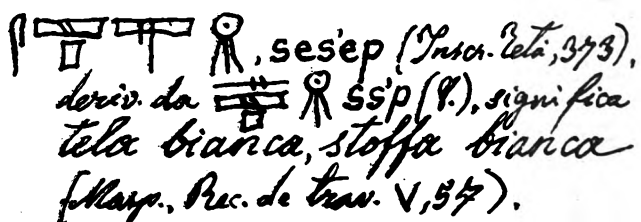 , ses'ep (Inscr. Teta, 373),
deriv. da ss'p (V.), significa
tela bianca, stoffa bianca
(Masp., Rec. de trav. V, 57).